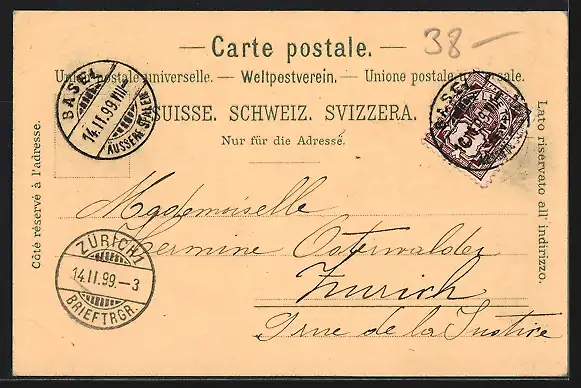 38 —
— Carte postale. —
Union postale universelle. — Weltpostverein. — Unione postale
SUISSE. SCHWEIZ. SVIZZERA.
Nur für die Adresse.
Côté réservé à l'adresse.
Lato riservato all' indirizzo.
BASEL
14.II.99.VIII
AUSSERE SPALEN
Mademoiselle
Hermine Osterwalder
Zurich
ZÜRICH 1
14.II.99.-3
BRIEFTRGR.
de la Justice